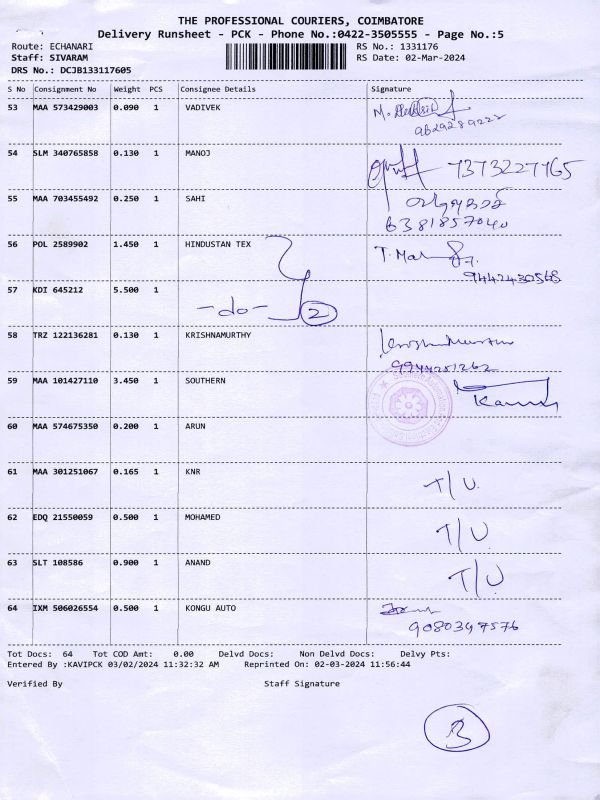 THE PROFESSIONAL COURIERS, COIMBATORE
Delivery Runsheet - PCK - Phone No.:0422-3505555 - Page No.:5
Route: ECHANARI RS No.: 1331176
Staff: SIVARAM RS Date: 02-Mar-2024
DRS No.: DCJB133117605
S No Consignment No Weight PCS Consignee Details Signature
53 MAA 573429003 0.090 1 VADIVEK
9629289222
54 SLM 340765858 0.130 1 MANOJ 7373227765
55 MAA 703455492 0.250 1 SAHI
6381857040
56 POL 2589902 1.450 1 HINDUSTAN TEX
9442430568
57 KDI 645212 5.500 1 -do- 2
58 TRZ 122136281 0.130 1 KRISHNAMURTHY
9944251262
59 MAA 101427110 3.450 1 SOUTHERN
60 MAA 574675350 0.200 1 ARUN
61 MAA 301251067 0.165 1 KNR T/U.
62 EDQ 21550059 0.500 1 MOHAMED T/U.
63 SLT 108586 0.900 1 ANAND T/U.
64 IXM 506026554 0.500 1 KONGU AUTO
9080397576
Tot Docs: 64 Tot COD Amt: 0.00 Delvd Docs: Non Delvd Docs: Delvy Pts:
Entered By :KAVIPCK 03/02/2024 11:32:32 AM Reprinted On: 02-03-2024 11:56:44
Verified By Staff Signature